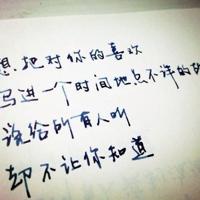 想把对你的喜欢
写进一个时间地点不详的故
说给所有人听
却不让你知道